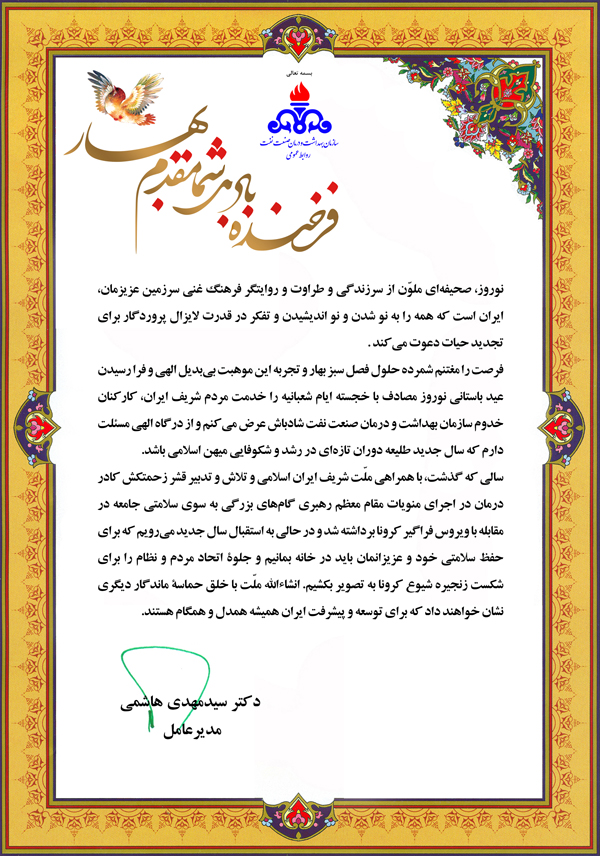 بسمه تعالی
سازمان بهداشت و درمان صنعت نفت
روابط عمومی
فرخنده باد بر شما مقدم بهار
نوروز، صحیفه‌ای ملوّن از سرزندگی و طراوت و روایتگر فرهنگ غنی سرزمین عزیزمان،
ایران است که همه را به نو شدن و نو اندیشیدن و تفکر در قدرت لایزال پروردگار برای
تجدید حیات دعوت می‌کند.
فرصت را مغتنم شمرده حلول فصل سبز بهار و تجربه این موهبت بی‌بدیل الهی و فرا رسیدن
عید باستانی نوروز مصادف با خجسته ایام شعبانیه را خدمت مردم شریف ایران، کارکنان
خدوم سازمان بهداشت و درمان صنعت نفت شادباش عرض می‌کنم و از درگاه الهی مسئلت
دارم که سال جدید طلیعه دوران تازه‌ای در رشد و شکوفایی میهن اسلامی باشد.
سالی که گذشت، با همراهی ملّت شریف ایران اسلامی و تلاش و تدبیر قشر زحمتکش کادر
درمان در اجرای منویات مقام معظم رهبری گام‌های بزرگی به سوی سلامتی جامعه در
مقابله با ویروس فراگیر کرونا برداشته شد و در حالی به استقبال سال جدید می‌رویم که برای
حفظ سلامتی خود و عزیزانمان باید در خانه بمانیم و جلوهٔ اتحاد مردم و نظام را برای
شکست زنجیره شیوع کرونا به تصویر بکشیم. انشاءالله ملّت با خلق حماسهٔ ماندگار دیگری
نشان خواهند داد که برای توسعه و پیشرفت ایران همیشه همدل و همگام هستند.
دکتر سیدمهدی هاشمی
مدیرعامل